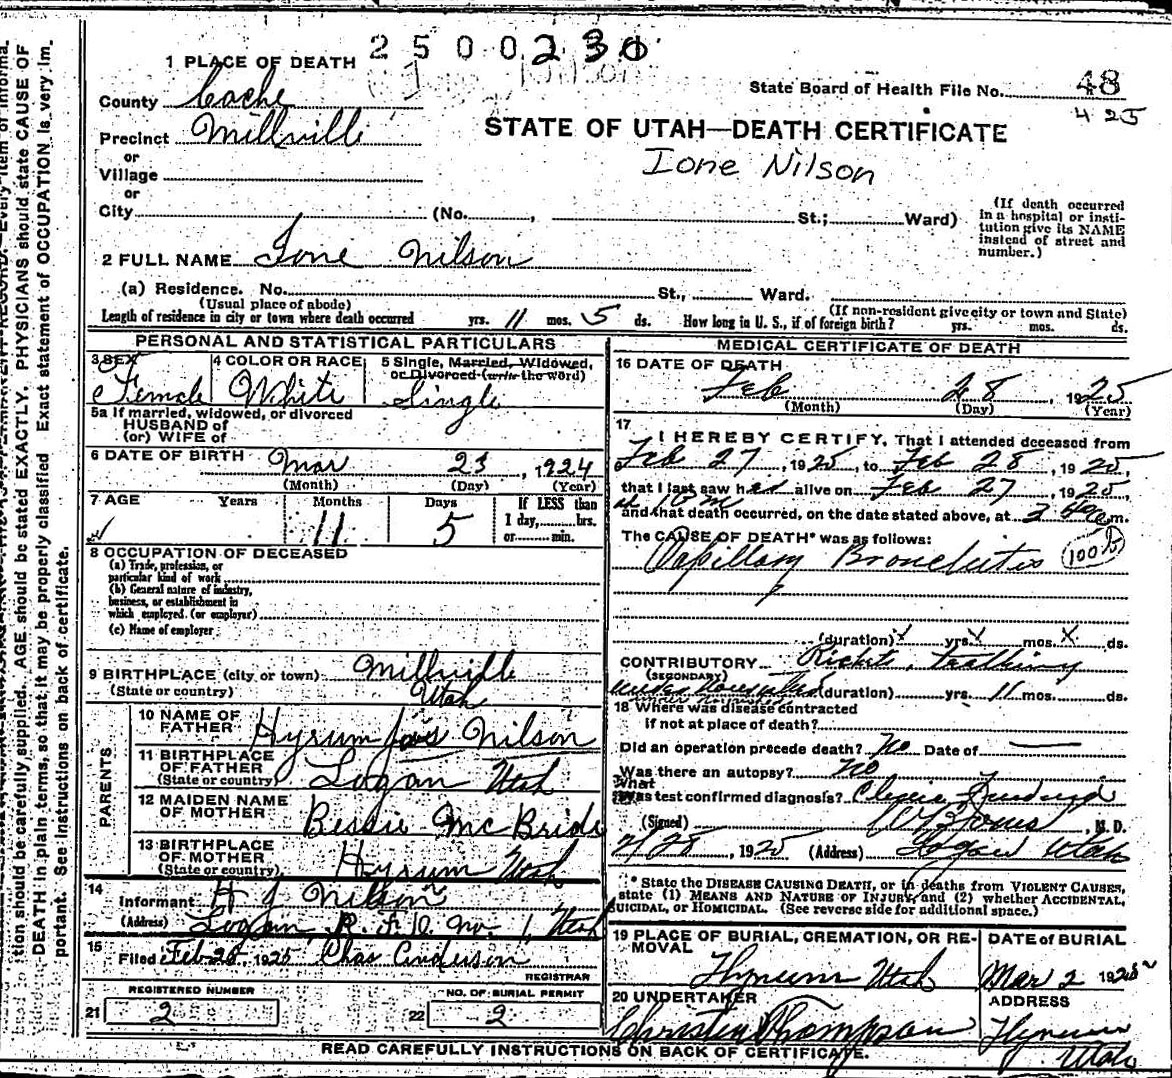 2500230
1 PLACE OF DEATH
State Board of Health File No. 48
425
County Cache
STATE OF UTAH—DEATH CERTIFICATE
Precinct Millville
Ione Nilson
or
Village
or
City (No. , St.; Ward)
(If death occurred in a hospital or insti-
tution give its NAME
instead of street and
number.)
2 FULL NAME Ione Nilson
(a) Residence. No. St., Ward.
(Usual place of abode) (If non-resident give city or town and State)
Length of residence in city or town where death occurred yrs. 11 mos. 5 ds. How long in U. S., if of foreign birth? yrs. mos. ds.
PERSONAL AND STATISTICAL PARTICULARS
3 SEX Female
4 COLOR OR RACE White
5 Single, Married, Widowed,
or Divorced (write the word)
Single
5a If married, widowed, or divorced
HUSBAND of
(or) WIFE of
6 DATE OF BIRTH Mar 23, 1924
(Month) (Day) (Year)
7 AGE Years Months 11 Days 5
If LESS than
1 day, hrs.
or min.
8 OCCUPATION OF DECEASED
(a) Trade, profession, or
particular kind of work
(b) General nature of industry,
business, or establishment in
which employed (or employer)
(c) Name of employer
9 BIRTHPLACE (city or town) Millville
(State or country) Utah
PARENTS
10 NAME OF
FATHER Hyrum Nilson
11 BIRTHPLACE
OF FATHER
(State or country) Logan Utah
12 MAIDEN NAME
OF MOTHER Bessie McBride
13 BIRTHPLACE
OF MOTHER
(State or country) Hyrum Utah
14
Informant H J Nilson
(Address) Logan R. F. D. No. 1, Utah
15
Filed Feb 28, 1925 Chas Anderson
REGISTRAR
REGISTERED NUMBER
21 2
NO. OF BURIAL PERMIT
22 2
MEDICAL CERTIFICATE OF DEATH
16 DATE OF DEATH
Feb 28, 1925
(Month) (Day) (Year)
17
I HEREBY CERTIFY, That I attended deceased from
Feb 27, 1925, to Feb 28, 1925,
that I last saw her alive on Feb 27, 1925,
and that death occurred, on the date stated above, at 3 m.
The CAUSE OF DEATH* was as follows:
Capillary Bronchitis
(duration) x yrs. x mos. x ds.
CONTRIBUTORY Rickets, teething
(SECONDARY)
(duration) yrs. 11 mos. ds.
18 Where was disease contracted
if not at place of death?
Did an operation precede death? No Date of —
Was there an autopsy? No
What test confirmed diagnosis?
(Signed) , M. D.
2/28, 1925 (Address) Logan Utah
* State the DISEASE CAUSING DEATH, or in deaths from VIOLENT CAUSES,
state (1) MEANS AND NATURE OF INJURY, and (2) whether ACCIDENTAL,
SUICIDAL, or HOMICIDAL. (See reverse side for additional space.)
19 PLACE OF BURIAL, CREMATION, OR RE-
MOVAL
Hyrum Utah
DATE of BURIAL
Mar 2 1925
20 UNDERTAKER
Christen Thompson
ADDRESS
Hyrum
Utah
READ CAREFULLY INSTRUCTIONS ON BACK OF CERTIFICATE.
tion should be carefully supplied. AGE should be stated EXACTLY. PHYSICIANS should state CAUSE OF
DEATH in plain terms, so that it may be properly classified. Exact statement of OCCUPATION is very im-
portant. See instructions on back of certificate.